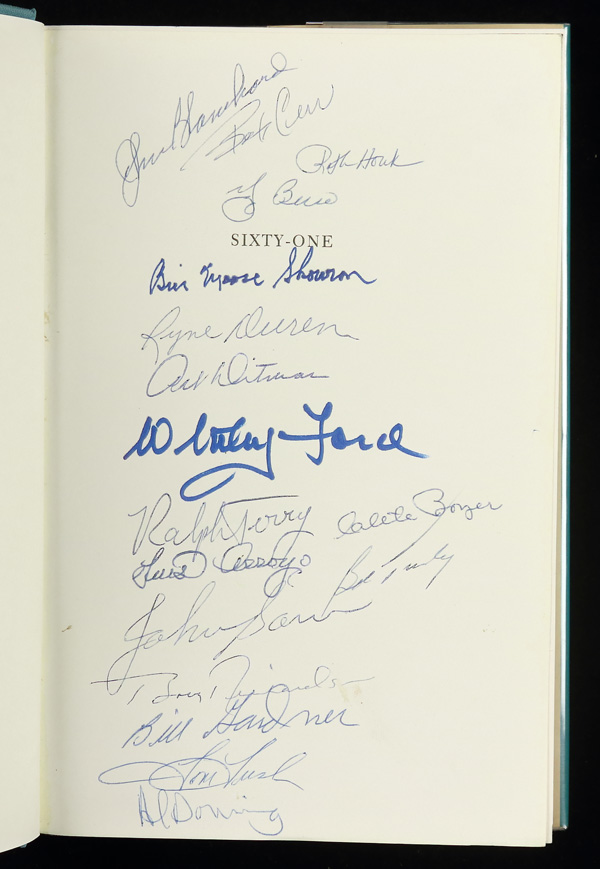 John Blanchard
Bob Cerv
Ralph Houk
Y Berra
SIXTY-ONE
Bill Moose Skowron
Ryne Duren
Art Ditmar
Whitey Ford
Ralph Terry
Clete Boyer
Luis Arroyo
Bob Turley
John Sain
Bobby Richardson
Bill Gardner
Tom Tresh
Al Downing